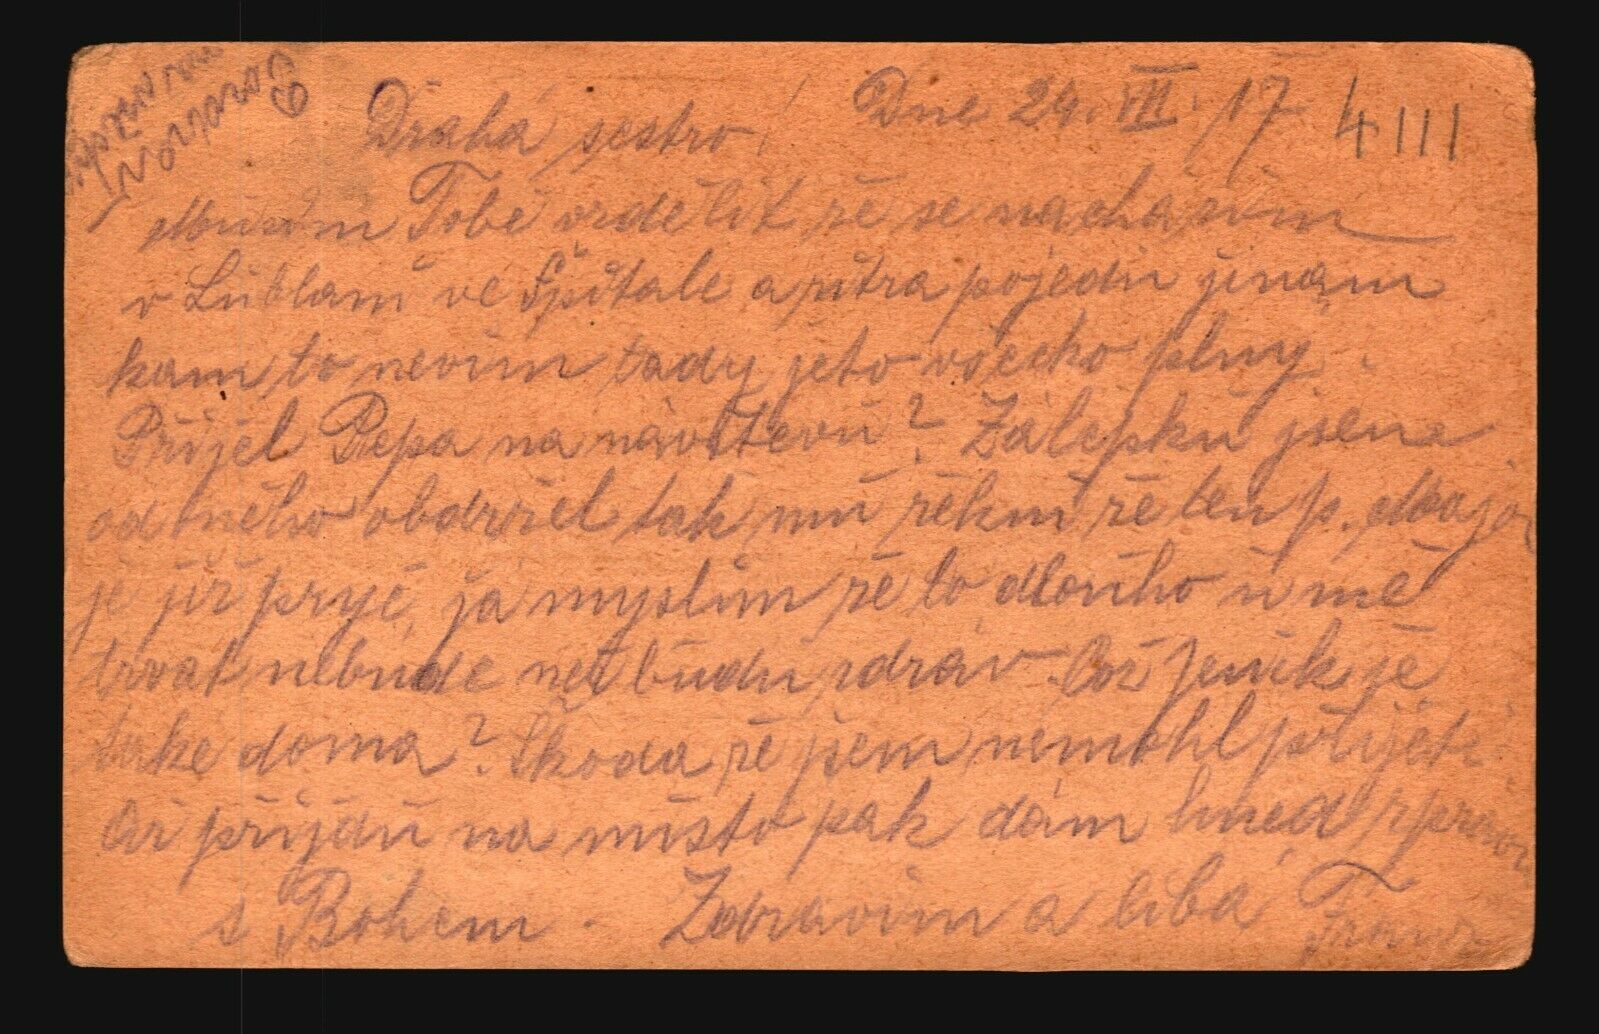 Drahá sestro! Dne 24. VII. 17 4111
Musím Tobě vrdělit že se nacházím
v Lublani ve Špitale a zitra pojedu jinam
kam to nevím tady jeto všecko plny.
Přijel Pepa na návštevu? Zálepku jsem
od něho obdržel tak mu řekni že ten p. Major
je již pryč, já myslim že to dlouho u mě
trvat nebude než budu zdráv. Což Jeník je
také doma? Škoda že jsem nemohl přijeti.
Až přijdu na místo pak dám hned zpravu
s Bohem. Zdravím a líbá Franz